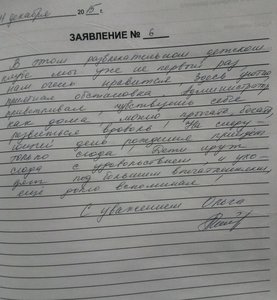 декабря 2015 г.
ЗАЯВЛЕНИЕ № 6
В этом развлекательном детском
клубе мы уже не первый раз
нам очень нравится, здесь уютно
приятная обстановка, администратор
приветливая, чувствуешь себя
как дома, можно прыгать, бегать
развиться вволю. На следу-
ющий день рождения приедем
только сюда. Дети идут
сюда с удовольствием и ухо-
дят под большим впечатлением,
ещё долго вспоминая.
С уважением Ольга